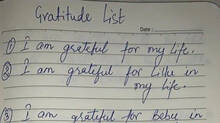 Gratitude List
Date:
① I am grateful for my life.
② I am grateful for Lilke in
my life.
③ I am grateful for Bebu in